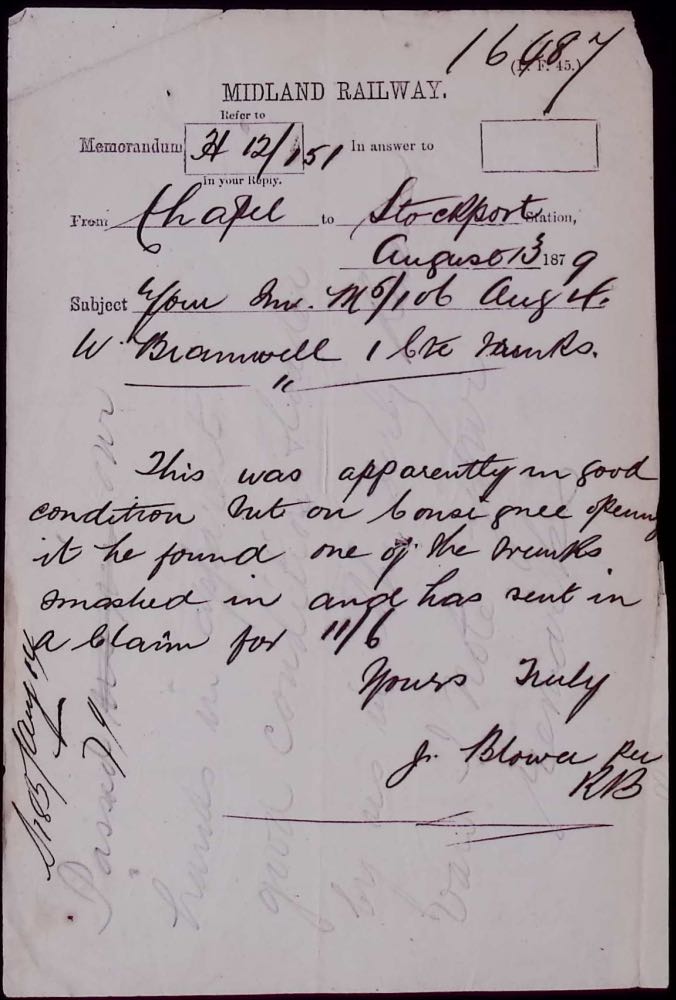 16487
(D. F. 45.)
MIDLAND RAILWAY.
Refer to
Memorandum H 12/151 In answer to
In your Reply.
From Chapel to Stockport Station,
August 13 1879
Subject Your Inv. M5/106 Aug 4.
W. Bramwell 1 Cte Trunks.
"
This was apparently in good
condition but on Consignee opening
it he found one of the trunks
smashed in and has sent in
a Claim for 11/6
Yours Truly
J. Blower per
RB
Passed
hands in
good condition
by us